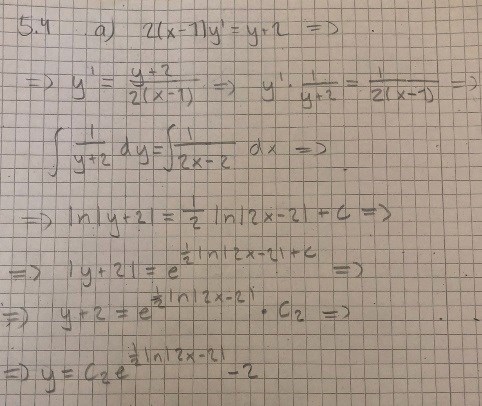 5.4 a) 2(x-1)y' = y+2 =>
=> y' = \frac{y+2}{2(x-1)} => y' · \frac{1}{y+2} = \frac{1}{2(x-1)} =>
∫ \frac{1}{y+2} dy = ∫ \frac{1}{2x-2} dx =>
=> ln|y+2| = \frac{1}{2} ln|2x-2| + c =>
=> |y+2| = e^{\frac{1}{2} ln|2x-2| + c} =>
=> y+2 = e^{\frac{1}{2} ln|2x-2|} · C_2 =>
=> y = C_2 e^{\frac{1}{2} ln|2x-2|} - 2